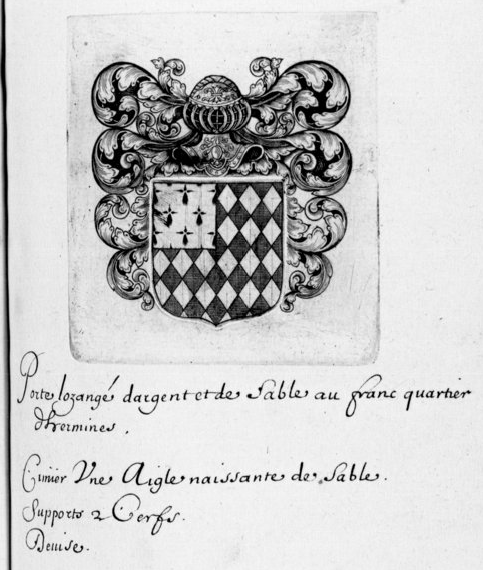 Porte lozangé dargent et de Sable au franc quartier
dhermines.
Cimier Vne Aigle naissante de Sable.
Supports 2 Cerfs.
Deuise.